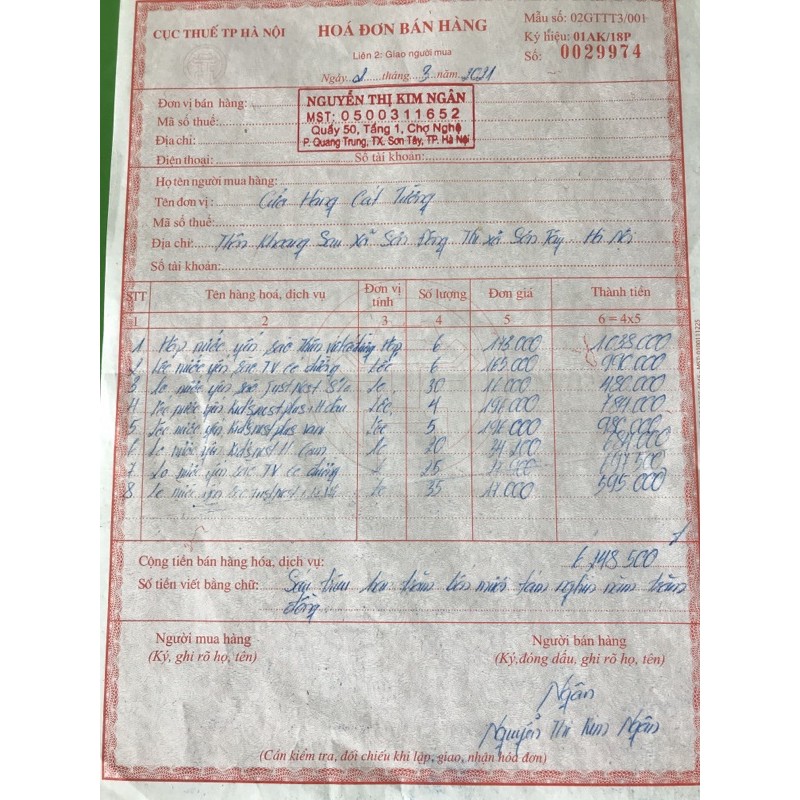 CỤC THUẾ TP HÀ NỘI
HOÁ ĐƠN BÁN HÀNG
Liên 2: Giao người mua
Mẫu số: 02GTTT3/001
Ký hiệu: 01AK/18P
Số: 0029974
Ngày 2 tháng 3 năm 2021
Đơn vị bán hàng:
Mã số thuế:
Địa chỉ:
Điện thoại: Số tài khoản:
NGUYỄN THỊ KIM NGÂN
MST: 0500311652
Quầy 50, Tầng 1, Chợ Nghệ
P. Quang Trung, TX. Sơn Tây, TP. Hà Nội
Họ tên người mua hàng:
Tên đơn vị: Cửa Hàng Cát Tường
Mã số thuế:
Địa chỉ: Thôn Khoang Sau Xã Sơn Đông Thị xã Sơn Tây Hà Nội
Số tài khoản:
STT Tên hàng hoá, dịch vụ Đơn vị tính Số lượng Đơn giá Thành tiền
1 2 3 4 5 6 = 4x5
1 Hộp nước yến sào Hộp 6 173.000 1.038.000
2 Lốc nước yến sào TV có đường Lốc 6 165.000 990.000
3 Lọ nước yến sào Lọ 30 16.000 480.000
4 Lốc nước yến Kid's nest plus Lốc 4 196.000 784.000
5 Lốc nước yến Kid's nest plus Lốc 5 196.000 980.000
6 Lọ nước yến Kid's nest H Cam 20 34.200 684.000
7 Lọ nước yến sào TV có đường 25
8 Lọ nước yến sào Lọ 35 17.000 595.000
Cộng tiền bán hàng hóa, dịch vụ: 6.248.500
Số tiền viết bằng chữ: Sáu triệu hai trăm bốn mươi tám nghìn năm trăm
đồng
Người mua hàng
(Ký, ghi rõ họ, tên)
Người bán hàng
(Ký, đóng dấu, ghi rõ họ, tên)
Ngân
Nguyễn Thị Kim Ngân
(Cần kiểm tra, đối chiếu khi lập, giao, nhận hóa đơn)